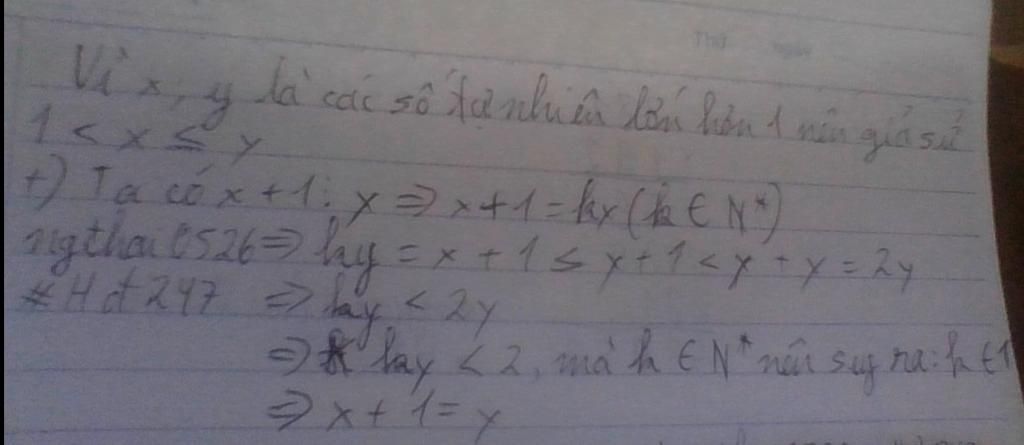 Thứ ngày
Vì x, y là các số tự nhiên lớn hơn 1 nên giả sử
1 < x ≤ y
+) Ta có x + 1 ⋮ y ⇒ x + 1 = ky (k ∈ N*)
ngthai0526 ⇒ ky = x + 1 ≤ y + 1 < y + y = 2y
#Hdt247 ⇒ ky < 2y
⇒ ky < 2, mà k ∈ N* nên suy ra: k ∈ 1
⇒ x + 1 = y